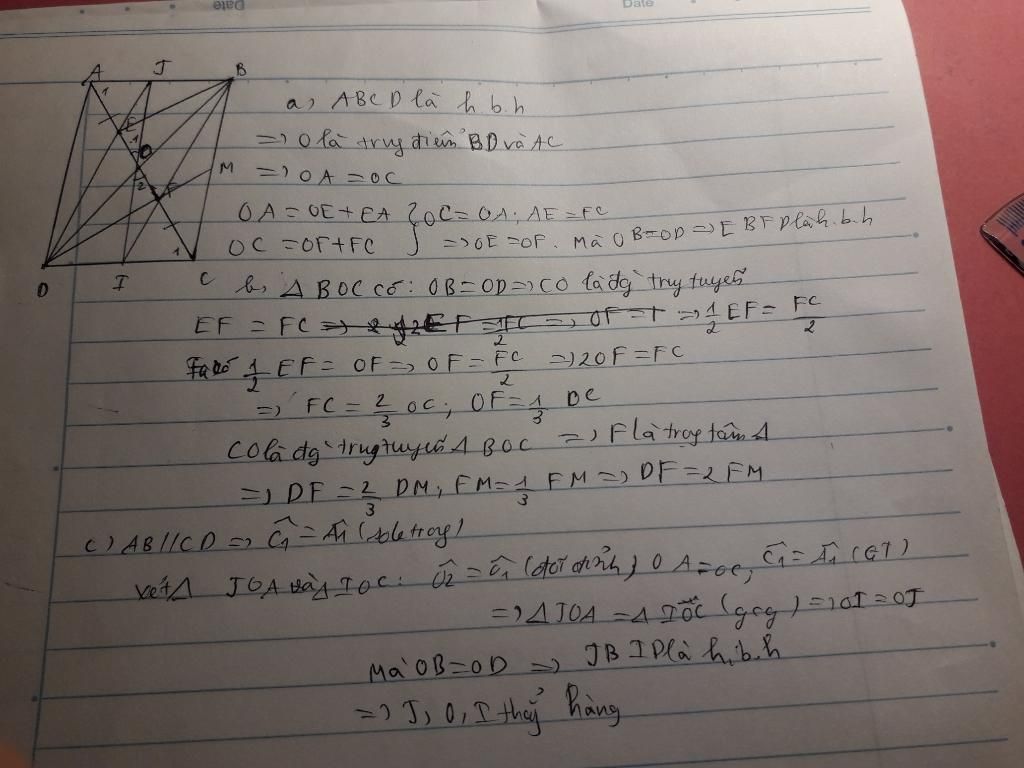 Date
Date
A J B
1
E
1
O
M
2
F
1
D I C
a, ABCD là h.b.h
=> O là trug điểm BD và AC
=> OA = OC
OA = OE + EA } OC = OA; AE = FC
OC = OF + FC => OE = OF. Mà OB = OD => EBFD là h.b.h
b, Δ BOC có: OB = OD => CO là đg trug tuyến
EF = FC => 1/2 EF = FC/2
1/2 EF = OF => OF = FC/2 => 2OF = FC
=> FC = 2/3 OC; OF = 1/3 OC
CO là đg trug tuyến Δ BOC => F là trọg tâm Δ
=> DF = 2/3 DM, FM = 1/3 FM => DF = 2FM
c) AB // CD => Ĉ1 = Â1 (sole trog)
xét Δ JOA và Δ IOC: Ô2 = Ô1 (đối đỉnh) OA = OC, Ĉ1 = Â1 (GT)
=> Δ JOA = Δ IOC (gcg) => OI = OJ
Mà OB = OD => JBID là h.b.h
=> J, O, I thẳg hàng